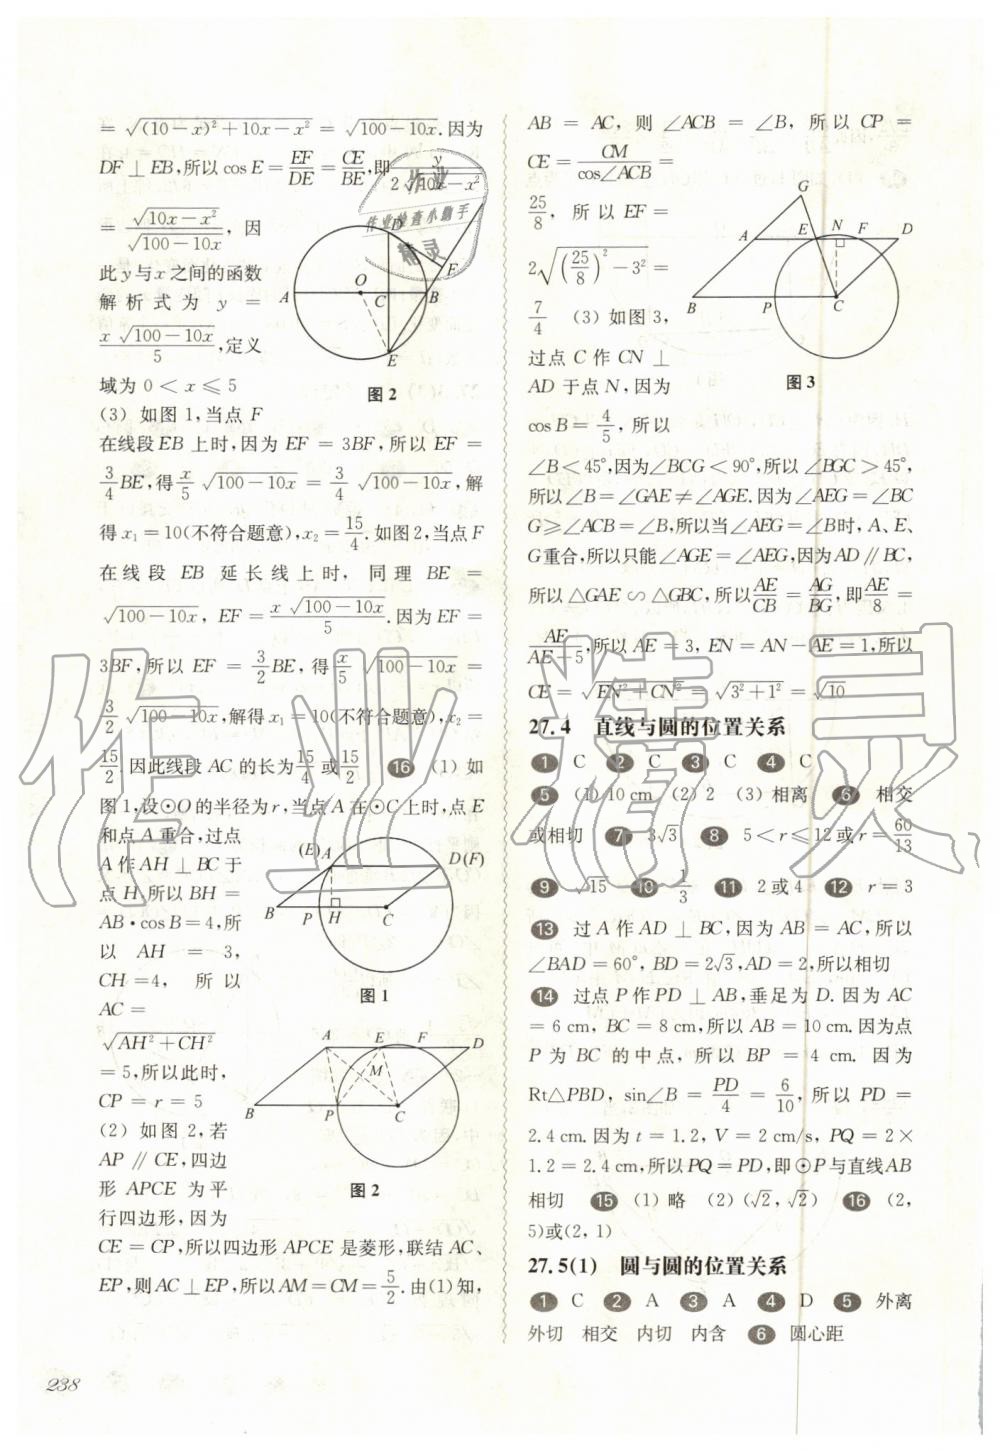 = √((10-x)²+10x-x²) = √(100-10x).因为
DF⊥EB,所以cos E=EF/DE=CE/BE,即y/(2√(10x-x²))
=√(10x-x²)/√(100-10x), 因
此y与x之间的函数
解析式为 y =
x√(100-10x)/5,定义
域为0<x≤5
(3) 如图1,当点F
A O C B D F E
图2
在线段EB上时,因为EF=3BF,所以EF=
3/4BE,得x/5√(100-10x)=3/4√(100-10x),解
得x₁=10(不符合题意),x₂=15/4.如图2,当点F
在线段EB延长线上时,同理BE=
√(100-10x), EF=x√(100-10x)/5.因为EF=
3BF,所以EF=3/2BE,得x/5√(100-10x)=
3/2√(100-10x),解得x₁=10(不符合题意),x₂=
15/2.因此线段AC的长为15/4或15/2 16 (1) 如
图1,设⊙O的半径为r,当点A在⊙C上时,点E
和点A重合,过点
A作AH⊥BC于
点H,所以BH=
AB·cos B=4,所
以 AH = 3,
CH=4, 所以
AC=
√(AH²+CH²)
=5,所以此时,
CP=r=5
(E) A D(F) B P H C
图1
(2) 如图2,若
AP∥CE,四边
形APCE为平
行四边形,因为
A E F D M B P C
图2
CE=CP,所以四边形APCE是菱形,联结AC、
EP,则AC⊥EP,所以AM=CM=5/2.由(1)知,
AB = AC, 则 ∠ACB = ∠B, 所以 CP =
CE = CM/cos∠ACB =
25/8, 所以EF=
2√((25/8)²-3²) =
7/4 (3) 如图3,
过点C作CN⊥
AD于点N,因为
cos B=4/5, 所以
G A E N F D B P C
图3
∠B<45°,因为∠BCG<90°,所以∠BGC>45°,
所以∠B=∠GAE≠∠AGE.因为∠AEG=∠BC
G≥∠ACB=∠B,所以当∠AEG=∠B时,A、E、
G重合,所以只能∠AGE=∠AEG,因为AD∥BC,
所以△GAE∽△GBC,所以AE/CB=AG/BG,即AE/8=
AE/(AE-5),所以AE=3, EN=AN-AE=1,所以
CE=√(EN²+CN²)=√(3²+1²)=√10
27.4 直线与圆的位置关系
1 C 2 C 3 C 4 C
5 (1) 10 cm (2) 2 (3) 相离 6 相交
或相切 7 3√3 8 5<r≤12或r=60/13
9 √15 10 1/3 11 2或4 12 r=3
13 过A作AD⊥BC,因为AB=AC,所以
∠BAD=60°, BD=2√3, AD=2,所以相切
14 过点P作PD⊥AB,垂足为D.因为AC
=6 cm, BC=8 cm,所以AB=10 cm.因为点
P为BC的中点,所以BP=4 cm.因为
Rt△PBD, sin∠B=PD/4=6/10,所以PD=
2.4 cm.因为t=1.2, V=2 cm/s, PQ=2×
1.2=2.4 cm,所以PQ=PD,即⊙P与直线AB
相切 15 (1) 略 (2) (√2, √2) 16 (2,
5)或(2, 1)
27.5(1) 圆与圆的位置关系
1 C 2 A 3 A 4 D 5 外离
外切 相交 内切 内含 6 圆心距
238
作业
作业检查小助手
精灵
作业精灵